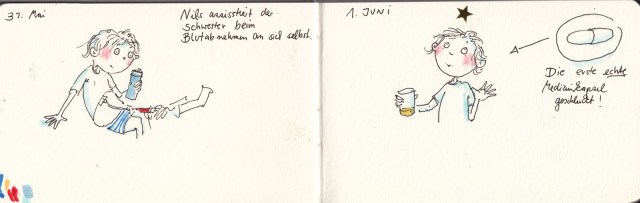 31. Mai
Nils assistiert der
Schwester beim
Blutabnehmen an sich selbst.
1. JUNI
Die erste echte
Medizinkapsel
geschluckt!